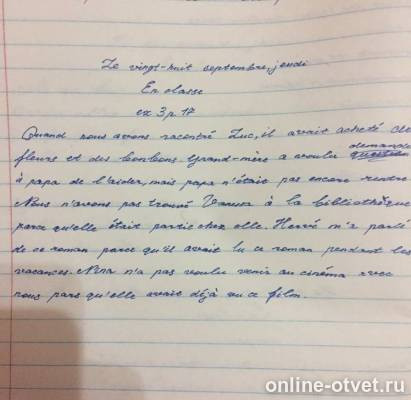 Le vingt-huit septembre, jeudi
En classe
ex 3 p 17
Quand nous avons racontré Luc, il avait acheté de
fleurs et des bonbons Grand-mère a voulu demander
à papa de l'aider, mais papa n'était pas encore rentré
Nous n'avons pas trouvé à la bibliothèque
parce qu'elle était partie chez elle. Hervé m'a parlé
de ce roman parce qu'il avait lu ce roman pendant les
vacances. Nina n'a pas voulu venir au cinéma avec
nous pars qu'elle avait déjà vu ce film.
online-otvet.ru